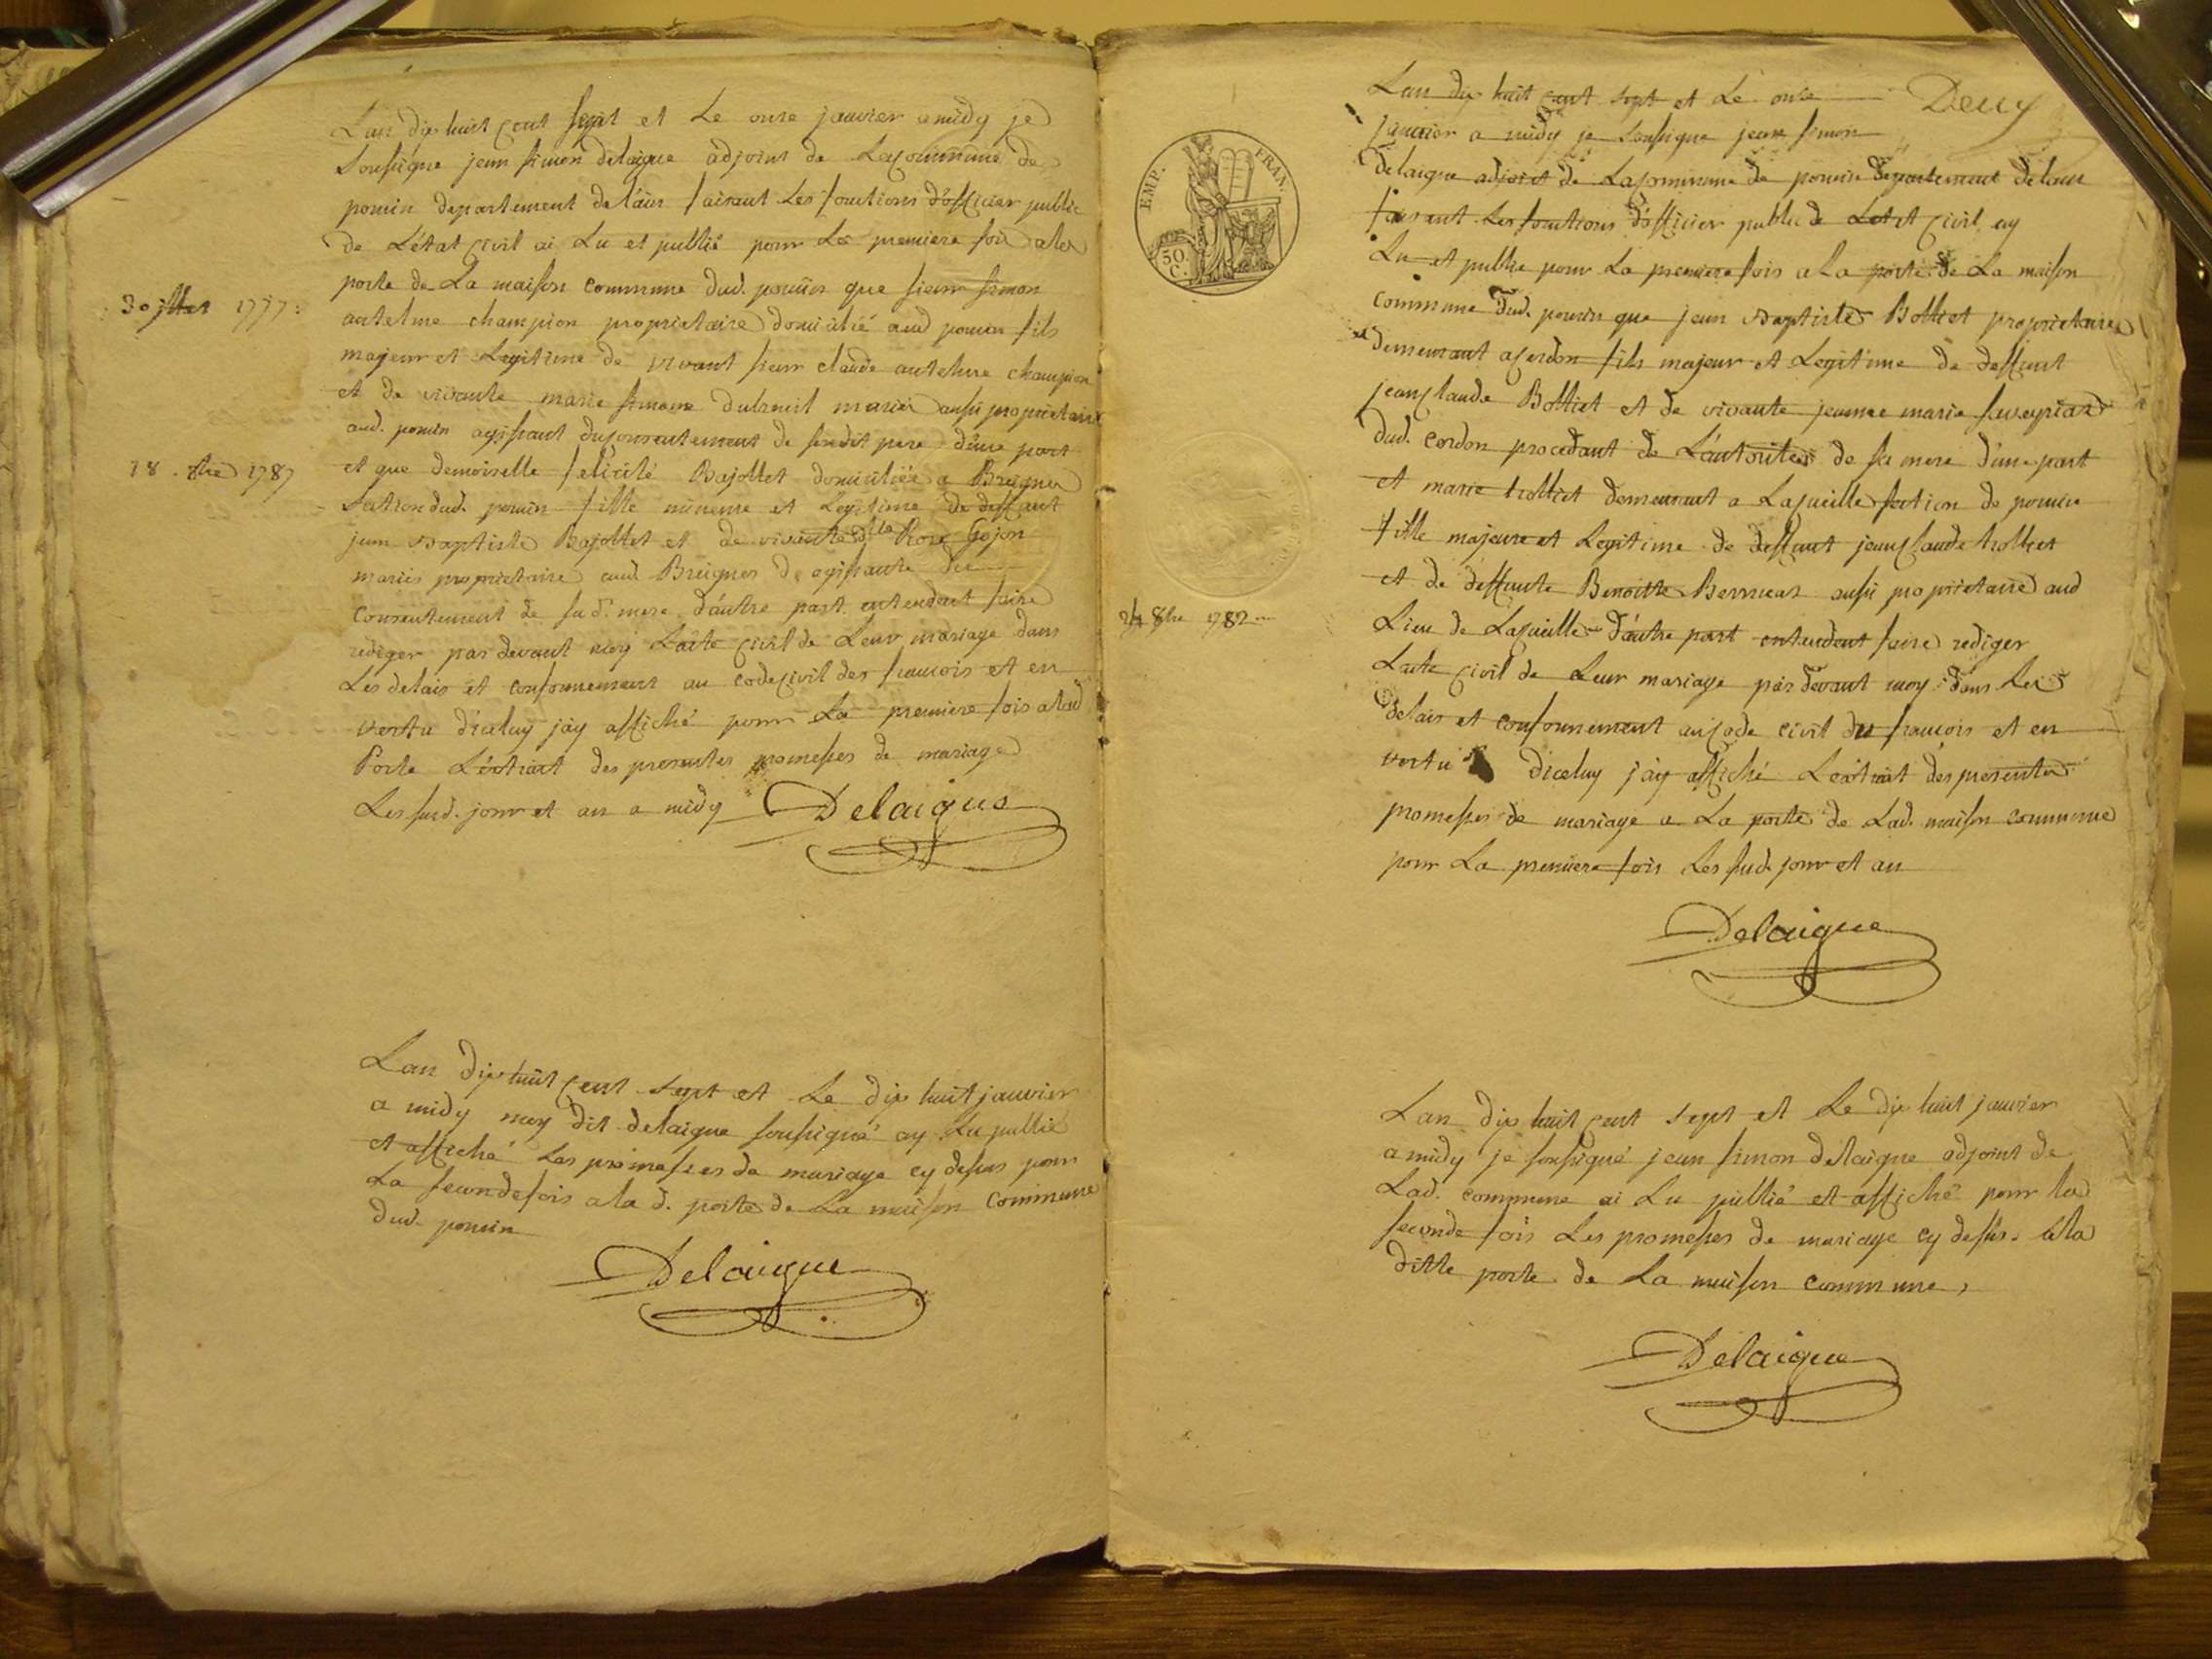 Lan dix huit cent sept et Le onze janvier a midy je
soussigné jean simon delaigue adjoint de La commune de
pouin departement de l'ain faisant Les fonctions d'officier public
de L'état civil ai Lu et publié pour La premiere fois a la
porte de La maison commune dud. pouin que sieur simon
antelme champion proprietaire domicilié aud pouin fils
majeur et Legitime de vivant sieur claude antelme champion
et de vivante marie simone dubreuil mariés aussi proprietaires
aud. pouin agissant du consentement de sondit pere d'une part
et que demoiselle felicité Bajollet domiciliée a Breignes
section dud. pouin fille mineure et Legitime de deffunt
jean Baptiste Bajollet et de vivante dlle Rose Gojon
mariés proprietaire aud Breignes agissante du
consentement de sad. mere d'autre part entendent faire
rediger par devant moy Lacte civil de Leur mariage dans
Les delais et conformement au code civil des francois et en
vertu d'icelluy j'ay affiché pour La premiere fois a lad
Porte L'extrait des presentes promesses de mariage
Les sud. jour et an a midy Delaigue
30 jllet 1777
18 . 8bre 1787
Lan dix huit cent sept et Le dix huit janvier
a midy moy dit delaigue soussigné ay Lu publié
et affiché Les promesses de mariage cy dessus pour
La seconde fois a la d. porte de La maison commune
dud. pouin
Delaigue
Deux
EMP. FRAN.
50 C.
Lan dix huit cent sept et Le onze
janvier a midy je soussigné jean simon
delaigue adjoint de La commune de pouin departement de lain
faisant Les fonctions d'officier public de Letat civil ay
Lu et publié pour La premiere fois a La porte de La maison
commune dud. pouin que jean Baptiste Bolliet proprietaire
demeurant a cordon fils majeur et Legitime de deffunt
jean claude Bolliet et de vivante jeanne marie
dud. cordon procedant de L'autorité de sa mere d'une part
et marie trolliet demeurant a Lajueille section de pouin
fille majeure et Legitime de deffunt jean claude trolliet
et de deffunte Benoitte aussi proprietaire aud
Lieu de Lajueille d'autre part entendent faire rediger
Lacte civil de Leur mariage par devant moy dans Les
delais et conformement au code civil des francois et en
vertu dicelluy j'ay affiché L'extrait des presentes
promesses de mariage a La porte de Lad. maison commune
pour La premiere fois Les sud. jour et an
24 8bre 1782
Delaigue
Lan dix huit cent sept et Le dix huit janvier
a midy je soussigné jean simon delaigue adjoint de
Lad. commune ai Lu publié et affiché pour la
seconde fois Les promesses de mariage cy dessus a la
ditte porte de La maison commune,
Delaigue